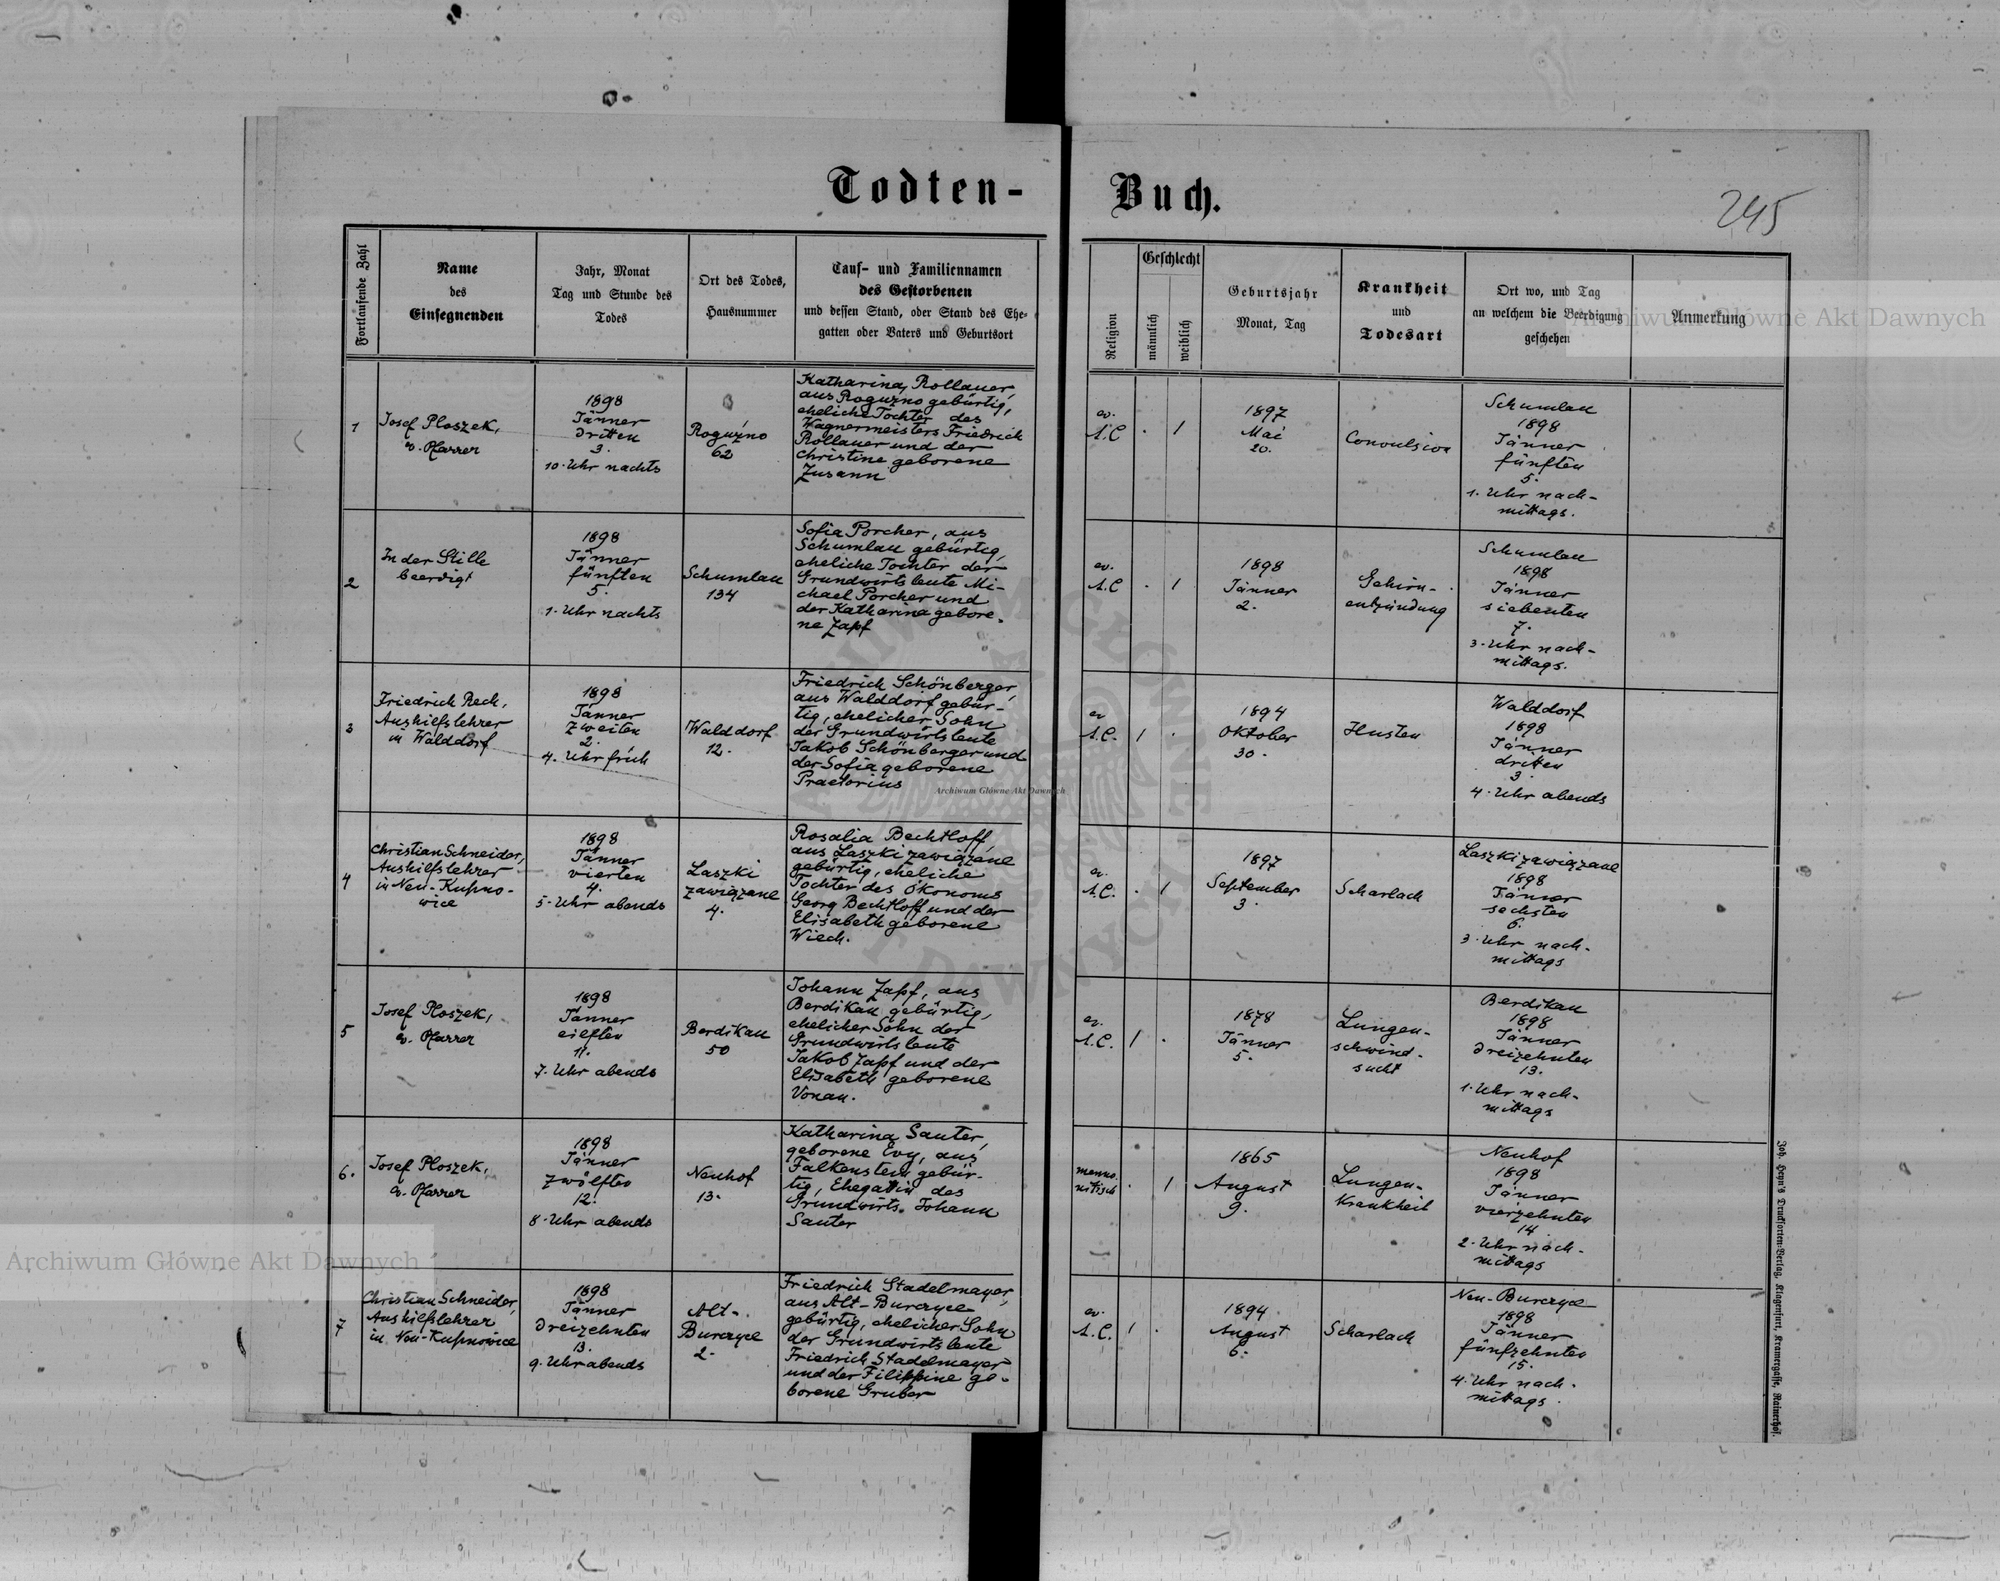 Todten-
Buch.
245
Fortlaufende Zahl
Name
des
Einsegnenden
Jahr, Monat
Tag und Stunde des
Todes
Ort des Todes,
Hausnummer
Tauf- und Familiennamen
des Gestorbenen
und dessen Stand, oder Stand des Ehe-
gatten oder Vaters und Geburtsort
Religion
Geschlecht
männlich
weiblich
Geburtsjahr
Monat, Tag
Krankheit
und
Todesart
Ort wo, und Tag
an welchem die Beerdigung
geschehen
Anmerkung
1
Josef Ploszek,
ev. Pfarrer
1898
Jänner
dritten
3.
10. Uhr nachts
Roguźno
62
Katharina Rollauer,
aus Roguźno gebürtig,
eheliche Tochter des
Wagnermeisters Friedrich
Rollauer und der
Christine geborene
Zusann
ev.
A.C
. 1
1897
Mai
20.
Convulsion
Schumlau
1898
Jänner
fünften
5.
1. Uhr nach-
mittags.
2
In der Stille
beerdigt
1898
Jänner
fünften
5.
1. Uhr nachts
Schumlau
134
Sofia Porcher, aus
Schumlau gebürtig,
eheliche Tochter der
Grundwirtsleute Mi-
chael Porcher und
der Katharina gebore-
ne Zapf
ev.
A.C
. 1
1898
Jänner
2.
Gehirn-
entzündung
Schumlau
1898
Jänner
siebenten
7.
3. Uhr nach-
mittags.
3
Friedrich Rech,
Aushilfslehrer
in Walddorf
1898
Jänner
zweiten
2.
4. Uhr früh
Walddorf
12.
Friedrich Schönberger,
aus Walddorf gebür-
tig, ehelicher Sohn
der Grundwirtsleute
Jakob Schönberger und
der Sofia geborene
Praetorius
ev
A.C.
1 .
1894
Oktober
30.
Husten
Walddorf
1898
Jänner
dritten
3.
4. Uhr abends
4
Christian Schneider,
Aushilfslehrer
in Neu-Kupno-
wice
1898
Jänner
vierten
4.
5. Uhr abends
Laszki
zawiązane
4.
Rosalia Bechtloff,
aus Laszki zawiązane
gebürtig, eheliche
Tochter des Ökonoms
Georg Bechtloff und der
Elisabeth geborene
Wiech.
ev.
A.C.
. 1
1897
September
3.
Scharlach
Laszki zawiązane
1898
Jänner
sechsten
6.
3. Uhr nach-
mittags
5
Josef Ploszek,
ev. Pfarrer
1898
Jänner
eilften
11.
7. Uhr abends
Berdikau
50
Johann Zapf, aus
Berdikau gebürtig,
ehelicher Sohn der
Grundwirtsleute
Jakob Zapf und der
Elisabeth geborene
Vonau.
ev.
A.C.
1 .
1878
Jänner
5.
Lungen-
schwind-
sucht
Berdikau
1898
Jänner
dreizehnten
13.
1. Uhr nach-
mittags
6.
Josef Ploszek,
ev. Pfarrer
1898
Jänner
zwölften
12.
8. Uhr abends
Neuhof
13.
Katharina Sauter,
geborene Ewy, aus
Falkenstein gebür-
tig, Ehegattin des
Grundwirts Johann
Sauter
menno
nitisch
. 1
1865
August
9.
Lungen-
krankheit
Neuhof
1898
Jänner
vierzehnten
14.
2. Uhr nach-
mittags
7
Christian Schneider,
Aushilfslehrer
in Neu-Kupnowice
1898
Jänner
dreizehnten
13.
9. Uhr abends
Alt-
Burczyce
2.
Friedrich Stadelmayer,
aus Alt-Burczyce
gebürtig, ehelicher Sohn
der Grundwirtsleute
Friedrich Stadelmayer
und der Filippine ge-
borene Gruber
ev.
A.C.
1 .
1894
August
6.
Scharlach
Neu-Burczyce
1898
Jänner
fünfzehnten
15.
4. Uhr nach-
mittags.
Joh. Heyn's Drucksorten-Verlag, Klagenfurt, Kramergasse, Rainerhof.
Archiwum Główne Akt Dawnych
Archiwum Główne Akt Dawnych
Archiwum Główne Akt Dawnych